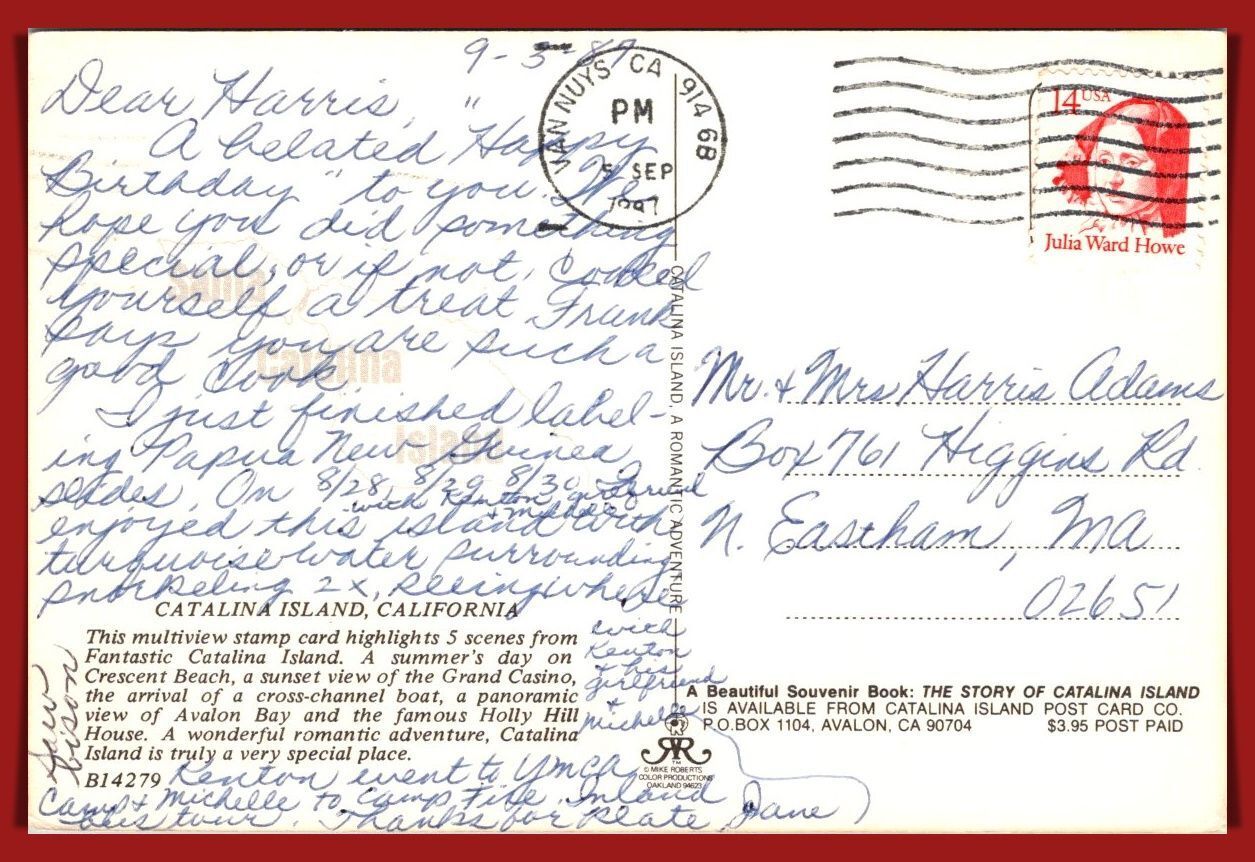 9-3-87
Dear Harris,
"
A belated Happy
Birthday" to you. We
hope you did something
special, or if not, cooked
yourself a treat Frank
says you are such a
good cook.
I just finished label-
ing Papua New Guinea
slides. On 8/28, 8/29 8/30 I
with Kenton, girlfriend
+ Michelle
enjoyed this island with
turquoise water surrounding
snorkeling 2x, seeing where
Santa
Catalina
Island
CATALINA ISLAND, CALIFORNIA
This multiview stamp card highlights 5 scenes from
Fantastic Catalina Island. A summer's day on
Crescent Beach, a sunset view of the Grand Casino,
the arrival of a cross-channel boat, a panoramic
view of Avalon Bay and the famous Holly Hill
House. A wonderful romantic adventure, Catalina
Island is truly a very special place.
B14279
with
Kenton
+ his
girlfriend
+
Michelle
Saw
bison
Kenton went to YMCA
Camp & Michelle to Camp Fire. Inland
tour. Thanks for plate, Jane
CATALINA ISLAND, A ROMANTIC ADVENTURE
VAN NUYS CA 914 6B
PM
5 SEP
14 USA
Julia Ward Howe
Mr. + Mrs Harris Adams
Box 761 Higgins Rd.
N. Eastham, MA
02651
A Beautiful Souvenir Book: THE STORY OF CATALINA ISLAND
IS AVAILABLE FROM CATALINA ISLAND POST CARD CO.
P.O.BOX 1104, AVALON, CA 90704 $3.95 POST PAID
TM
© MIKE ROBERTS
COLOR PRODUCTIONS
OAKLAND 94623